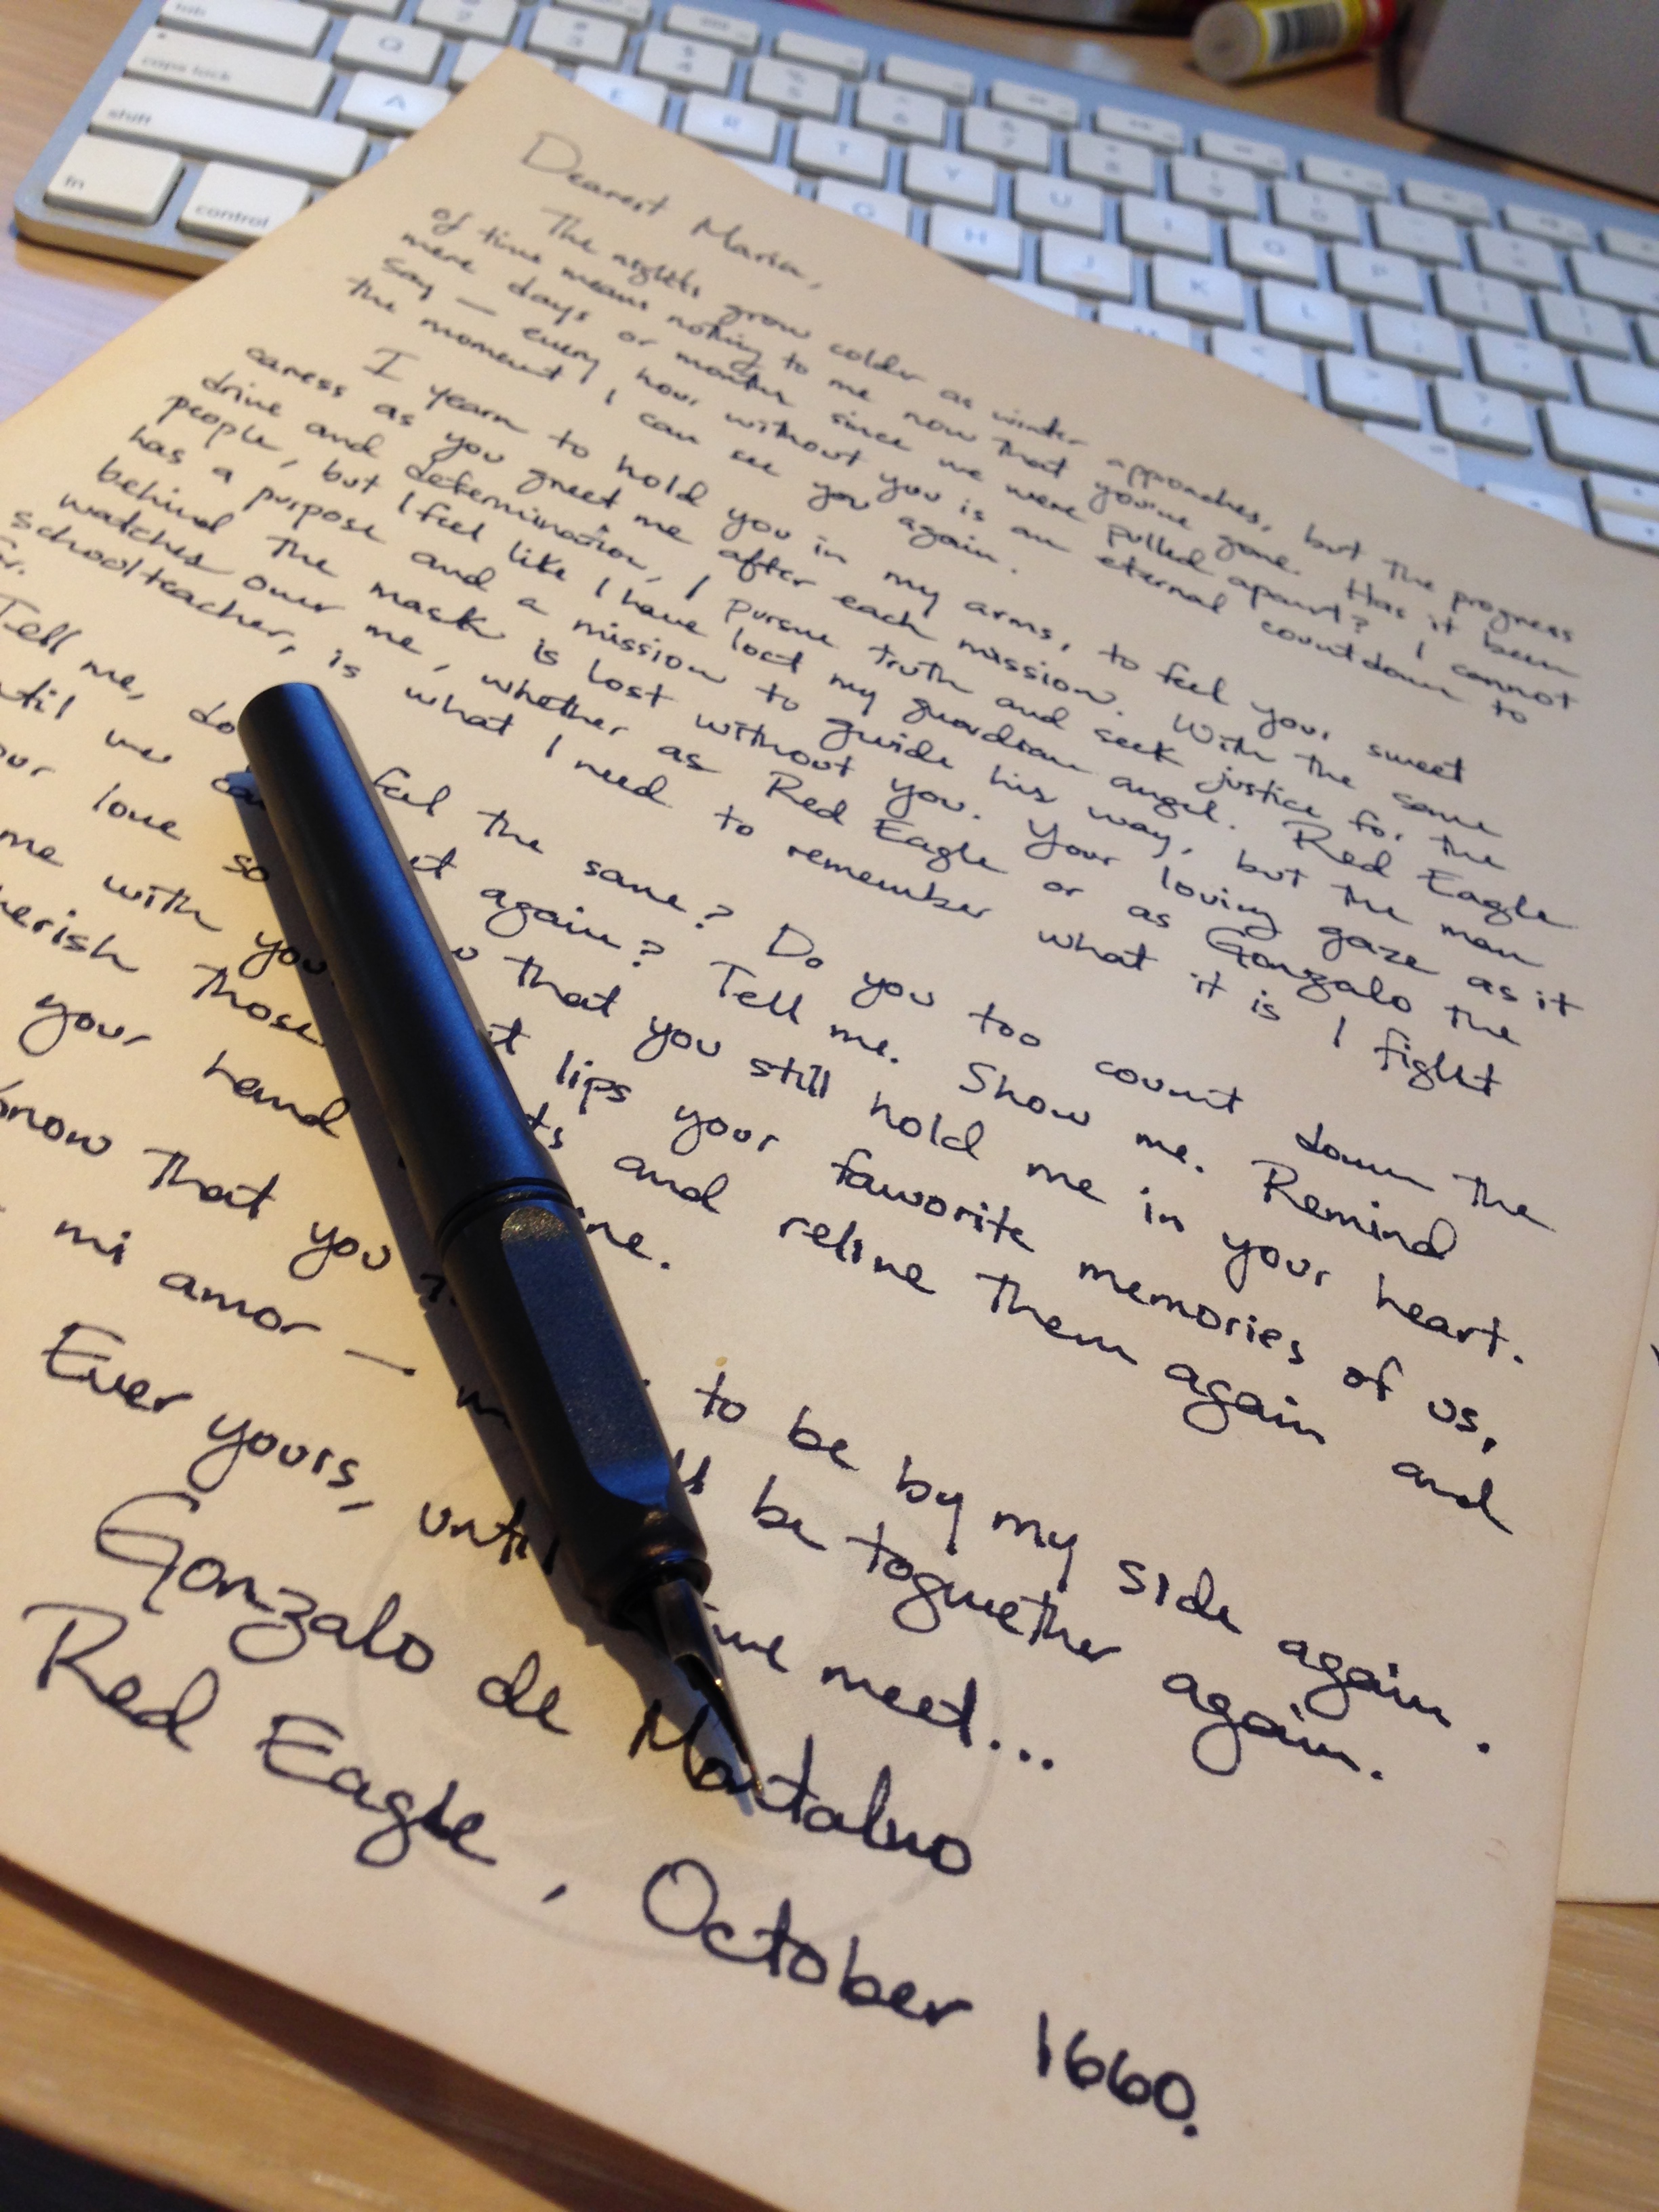 tab
Q
caps lock
A
E R T Y U I O P
shift
G H J K L
fn
control
Dearest Maria,
The nights grow colder as winter approaches, but the progress
of time means nothing to me now that you're gone. Has it been
mere days or months since we were pulled apart? I cannot
say — every hour without you is an eternal countdown to
the moment I can see you again.
I yearn to hold you in my arms, to feel your sweet
caress as you greet me after each mission. With the same
drive and determination, I pursue truth and seek justice for the
people, but I feel like I have lost my guardian angel. Red Eagle
has a purpose and a mission to guide his way, but the man
behind the mask is lost without you. Your loving gaze as it
watches over me, whether as Red Eagle or as Gonzalo the
schoolteacher, is what I need to remember what it is I fight
for.
Tell me, do feel the same? Do you too count down the
until we again? Tell me. Show me. Remind
our love so that you still hold me in your heart.
me with your lips your favorite memories of us,
cherish those and relive them again and
your hand
Know that you to be by my side again.
mi amor — be toguether again.
Ever yours, until we meet...
Gonzalo de Montalvo
Red Eagle, October 1660.